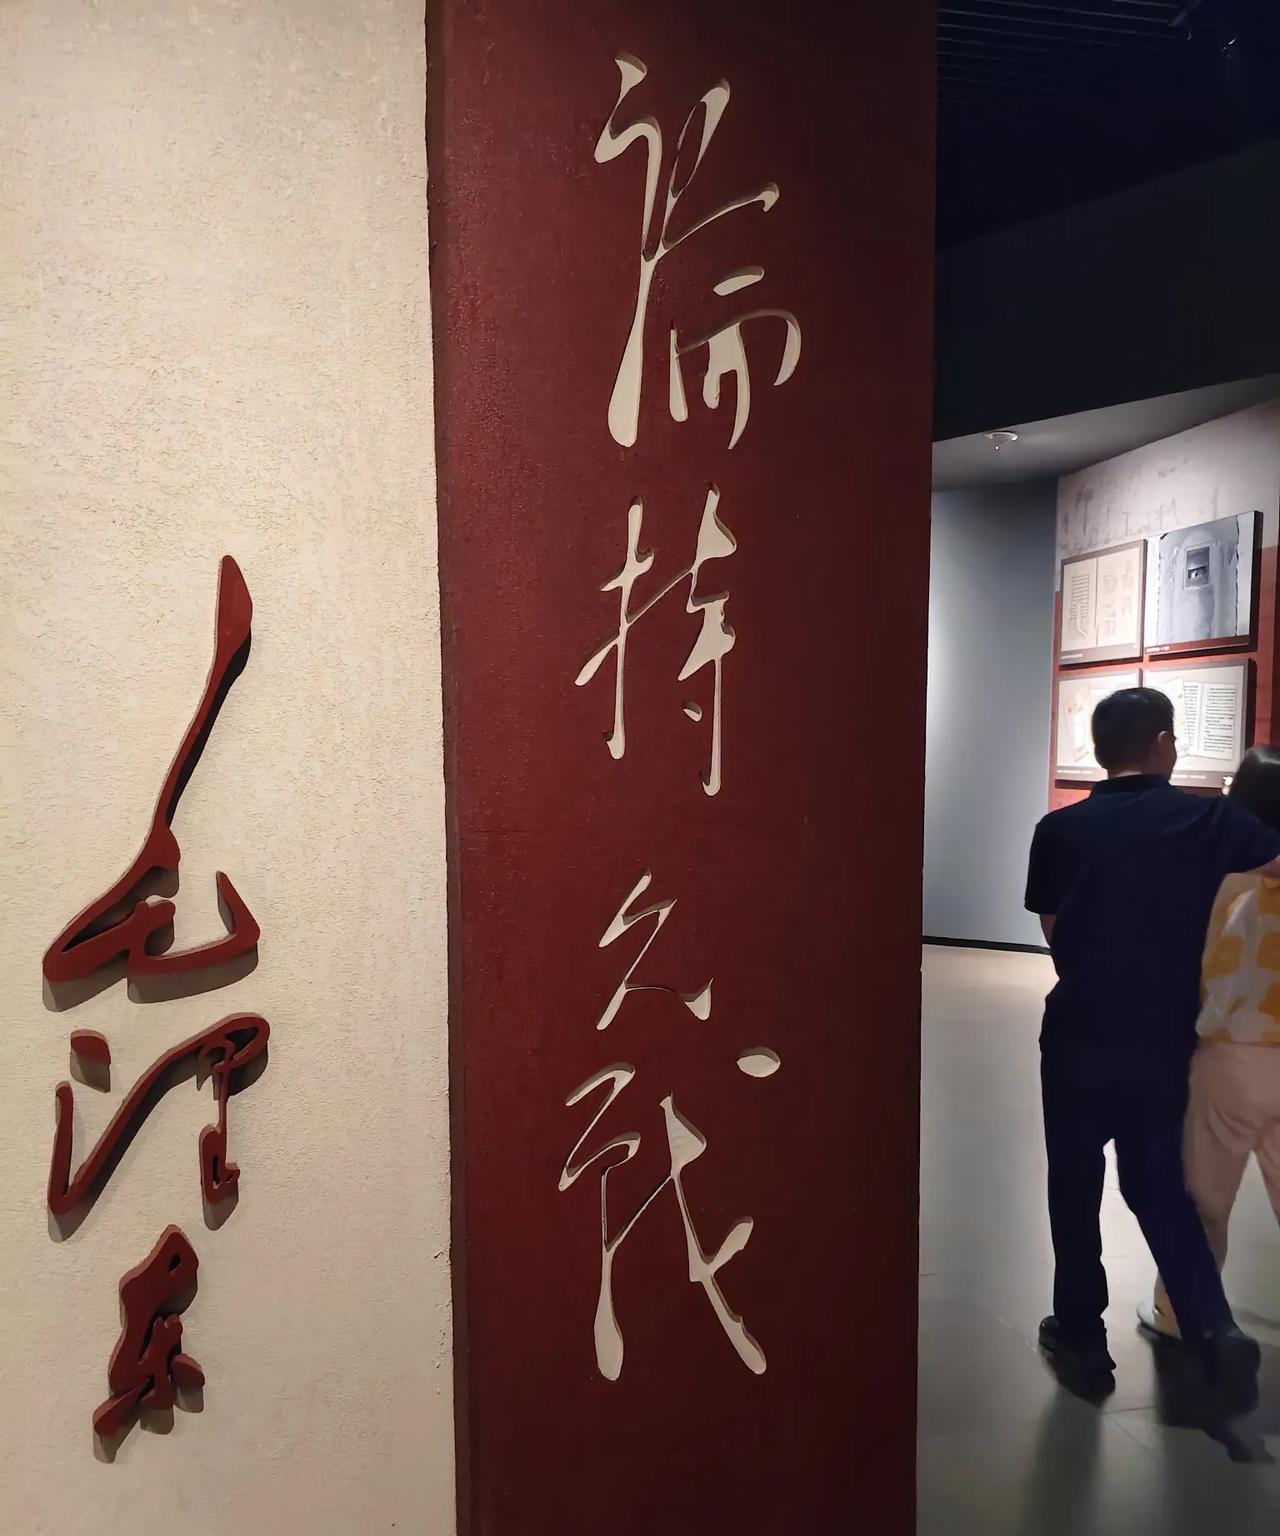 論持久战
毛泽东